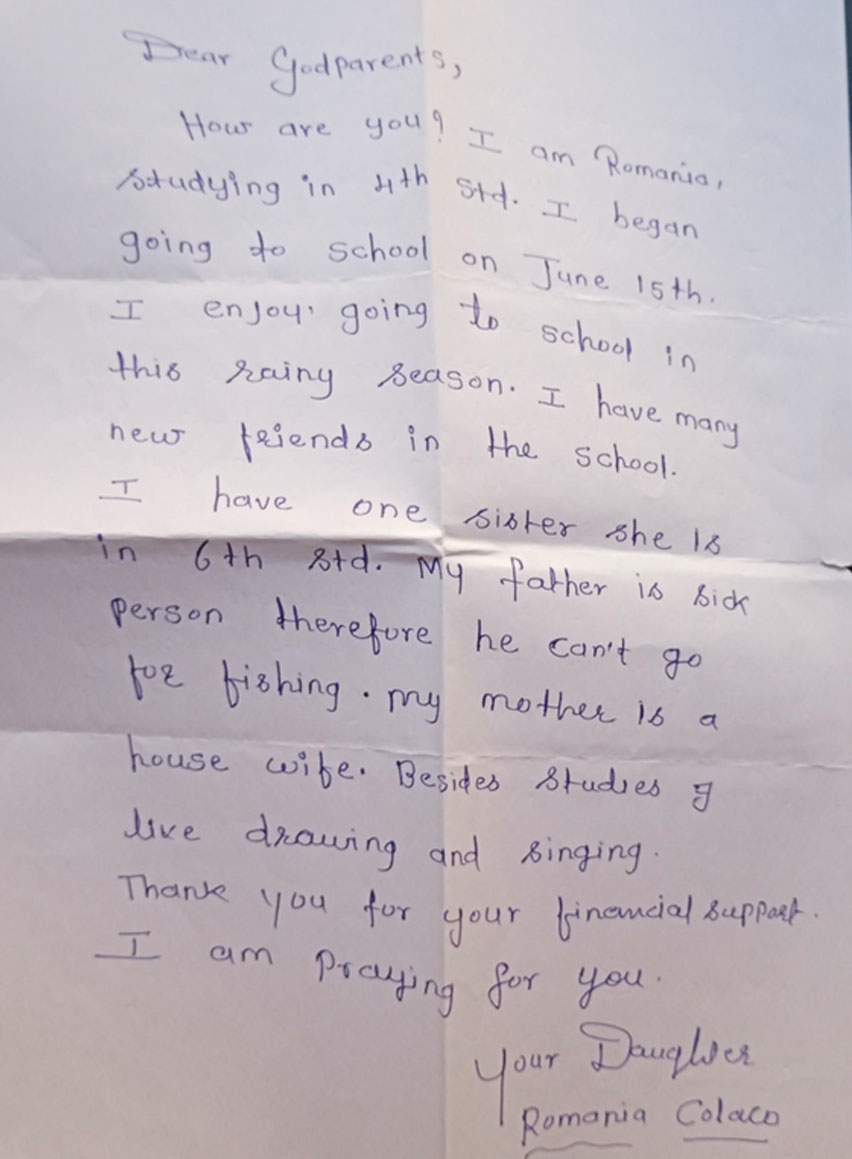 Dear Godparents,
How are you? I am Romania,
studying in 4th std. I began
going to school on June 15th.
I enjoy going to school in
this rainy season. I have many
new friends in the school.
I have one sister she is
in 6th std. My father is sick
person therefore he can't go
for fishing. my mother is a
house wife. Besides studies I
live drawing and singing.
Thank you for your financial support.
I am praying for you.
your Daughter
Romania Colaco